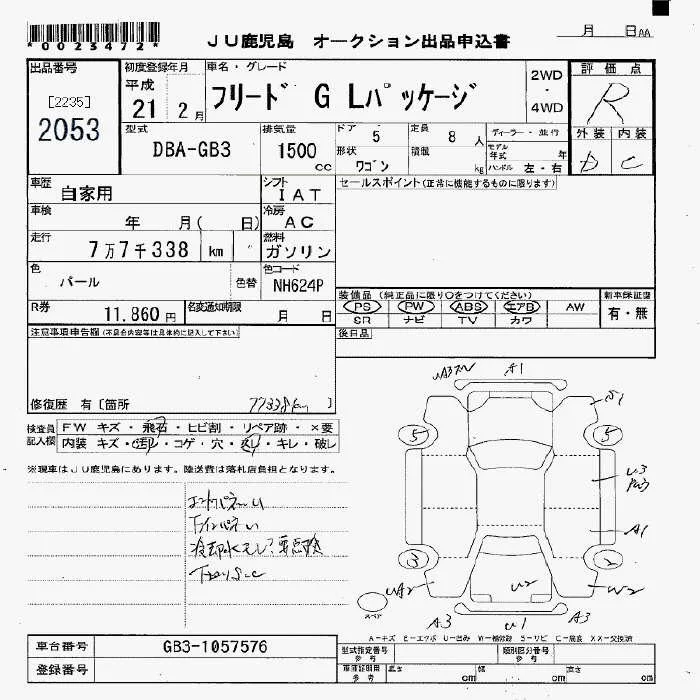 *0023472*
JU鹿児島 オークション出品申込書
月 日AA
出品番号
[2235]
2053
初度登録年月
平成
21 2月
車名・グレード
フリード G Lパッケージ
2WD
・
4WD
評価点
R
型式
DBA-GB3
排気量
1500
cc
ドア 5
定員 8 人
形状 ワゴン
積載 kg
ディーラー・並行
モデル年式 年
ハンドル 左・右
外装 内装
D C
車歴
自家用
シフト
IAT
セールスポイント(正常に機能するものに限ります)
車検
年 月( 日)
冷房
AC
走行
7万7千338 km
燃料
ガソリン
色
パール
色替
色コード
NH624P
装備品(純正品に限り○をつけてください)
PS PW ABS エアB AW
SR ナビ TV カワ
新車保証書
有・無
R券
11,860円
名変通知期限
月 日
後日品
注意事項申告欄(不具合内容等は具体的に記入して下さい)
修復歴 有〔箇所 77338km 〕
検査員記入欄
FW キズ・飛石・ヒビ割・リペア跡・×要
内装 キズ・汚れ・コゲ・穴・スレ・キレ・破レ
※現車はJU鹿児島にあります。陸送費は落札店負担となります。
エンドパネルU
冷却水モレ?要点検
A1
S1
5
5
U3
A1
3
2
UA2
U2
W2
スペア
A3
U1
A3
A-キズ E-エクボ U-凹み W-補修跡 S-サビ C-腐食 XX-交換済
車台番号
GB3-1057576
登録番号
型式指定番号
参考
類別区分番号
参考
車庫証明用
参考
長さ cm
幅 cm
高さ cm